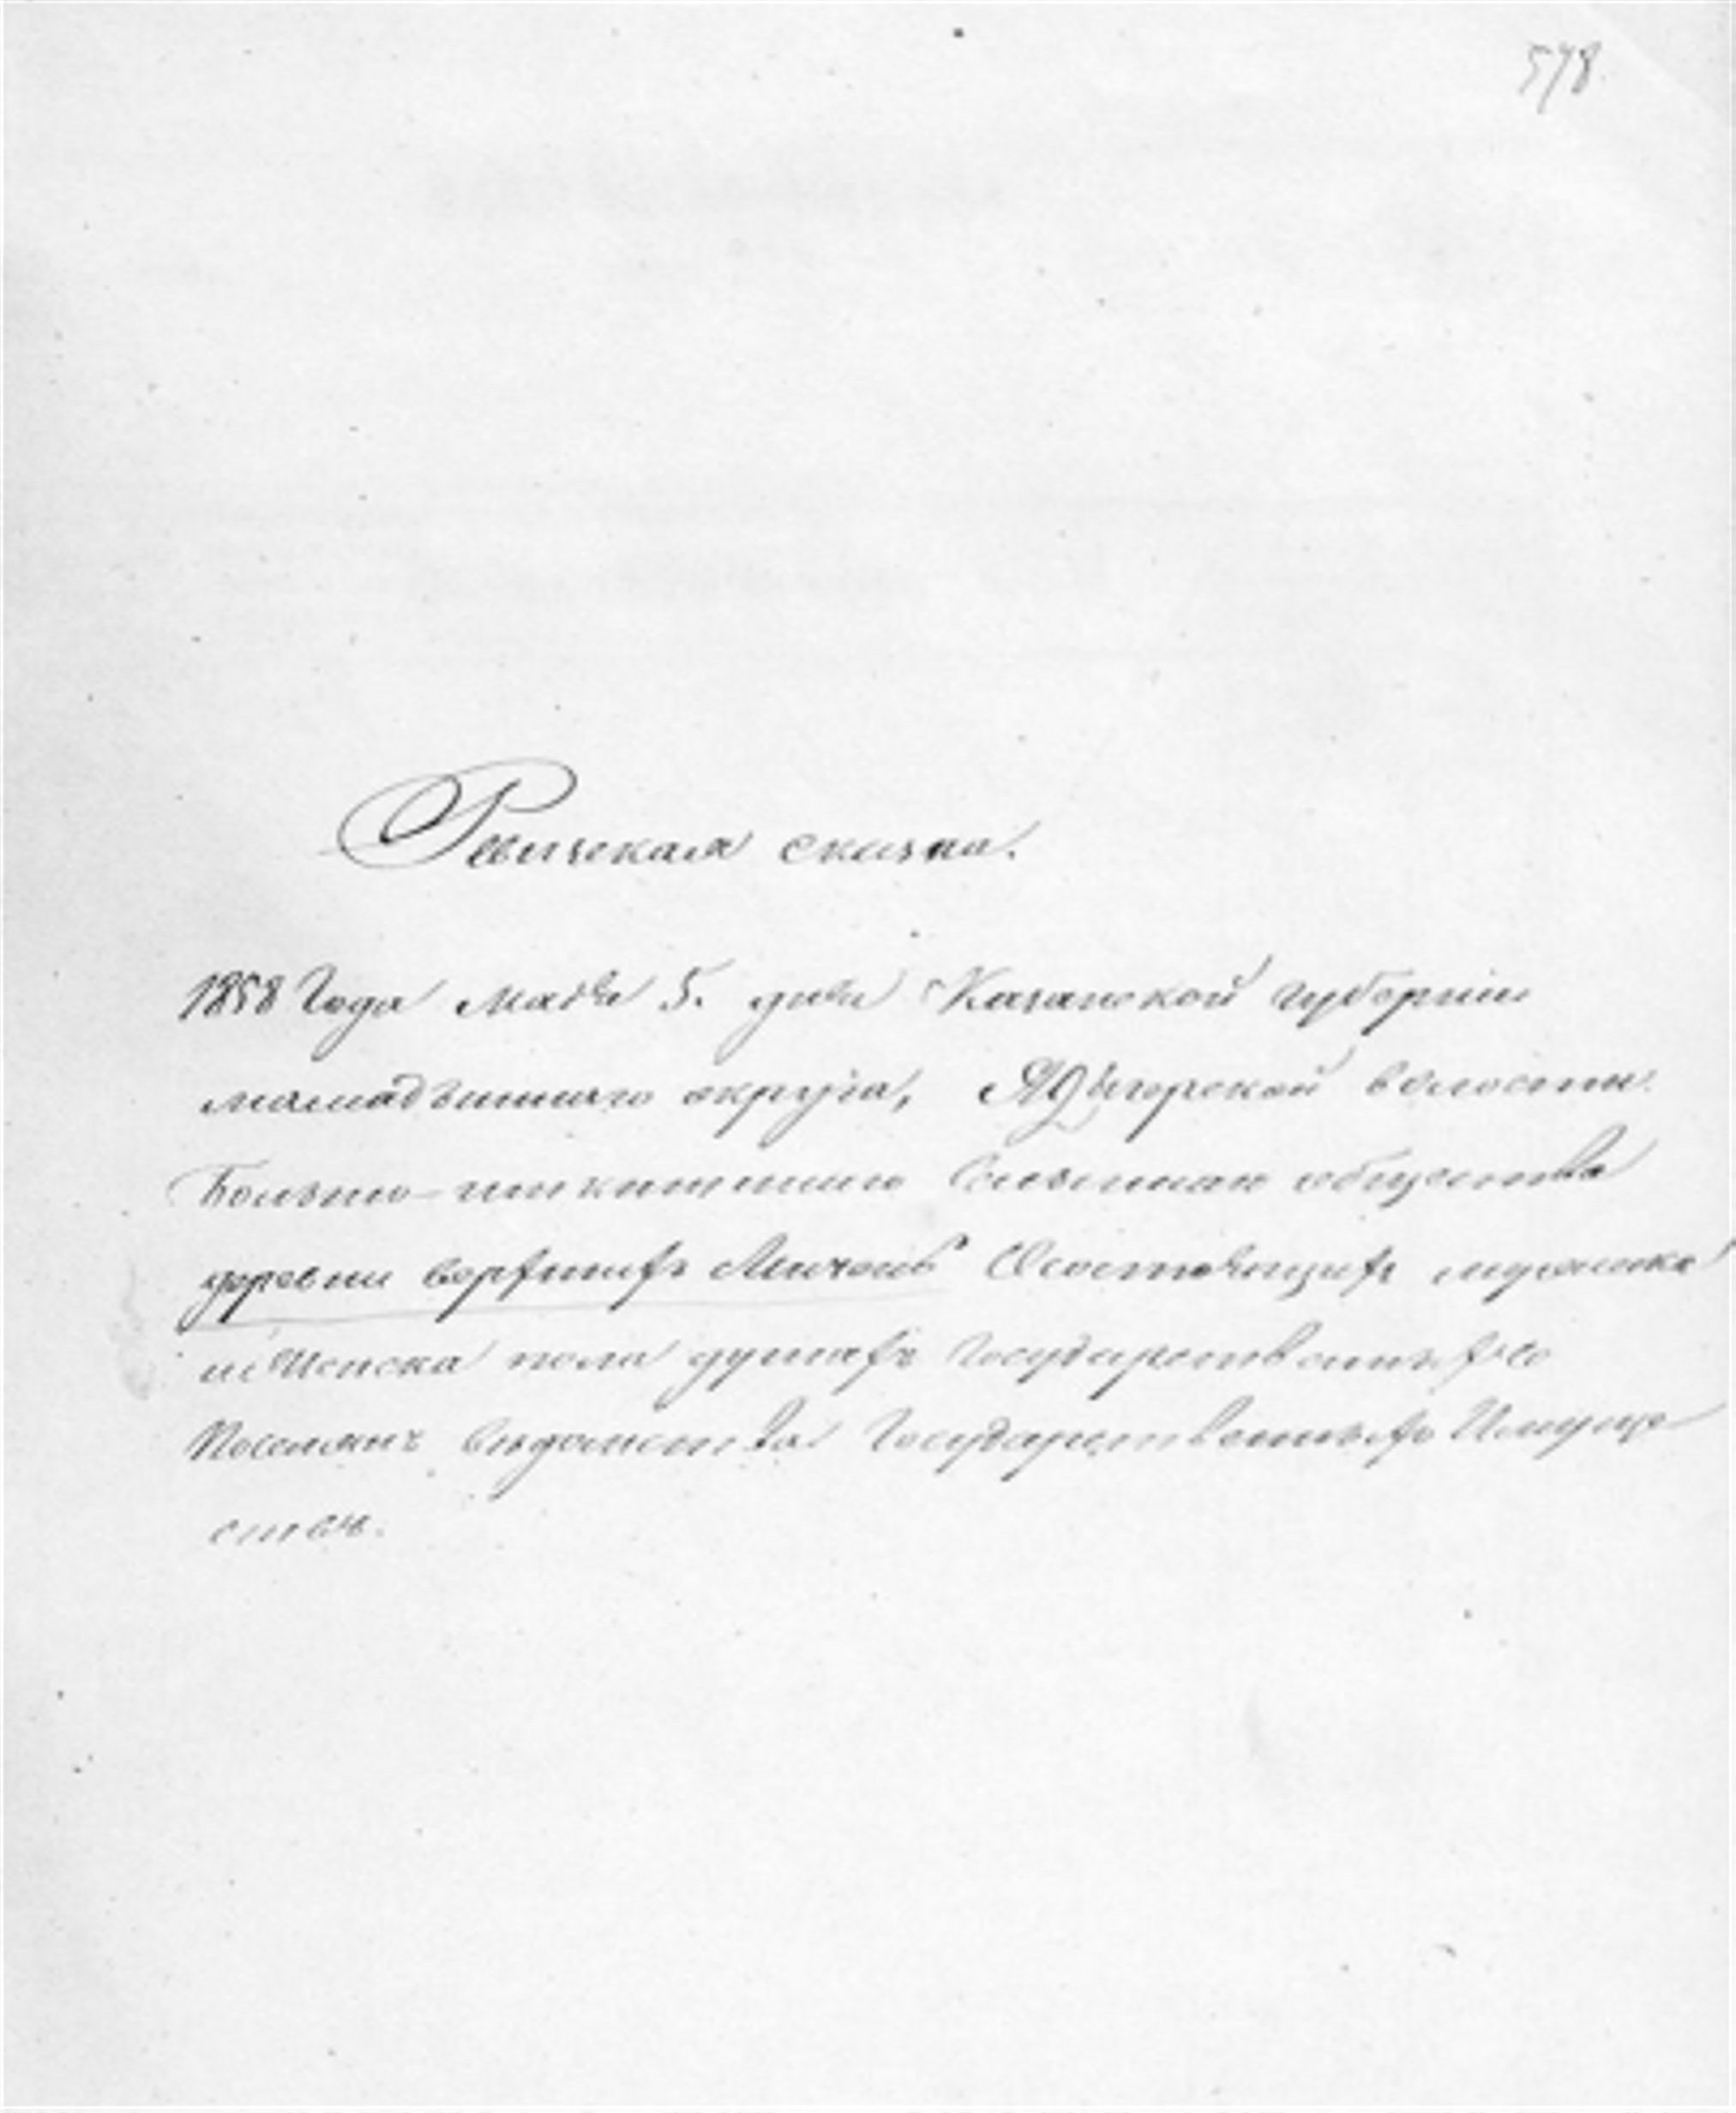 578
Ревизская сказка.
1858 Года Маія 5. дня Казанской губерніи
мамадышскаго округа, волости
Больше- Сельскаго общества
деревни верхнихъ Состоящихъ мужска
и Женска пола душахъ Государственныхъ
Поселянъ вѣдомства Государственныхъ Имуще
ствъ.